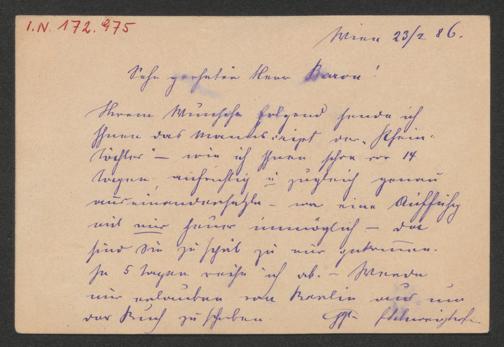 I.N. 172.975
Wien 23/2 86.
Sehr geehrter Herr Baron!
Ihrem Wunsche folgend sende ich
Ihnen das Manuscript der „Rhein-
töchter" – wie ich Ihnen schon vor 14
Tagen, aufrichtig u zugleich genau
auseinandersetzte – war eine Aufführg
mit mir heuer unmöglich – da
sind Sie zu spät zu mir gekommen.
In 5 Tagen reise ich ab. – Werde
mir erlauben von Berlin aus um
das Buch zu schreiben